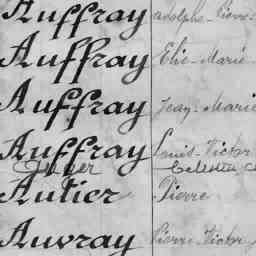 Auffray Adolphe-Pierre-
Auffray Elie-Marie
Auffray Jean-Marie
Auffray Louis-Victor
Célestin
Autier Pierre
Auvray Pierre-Victor